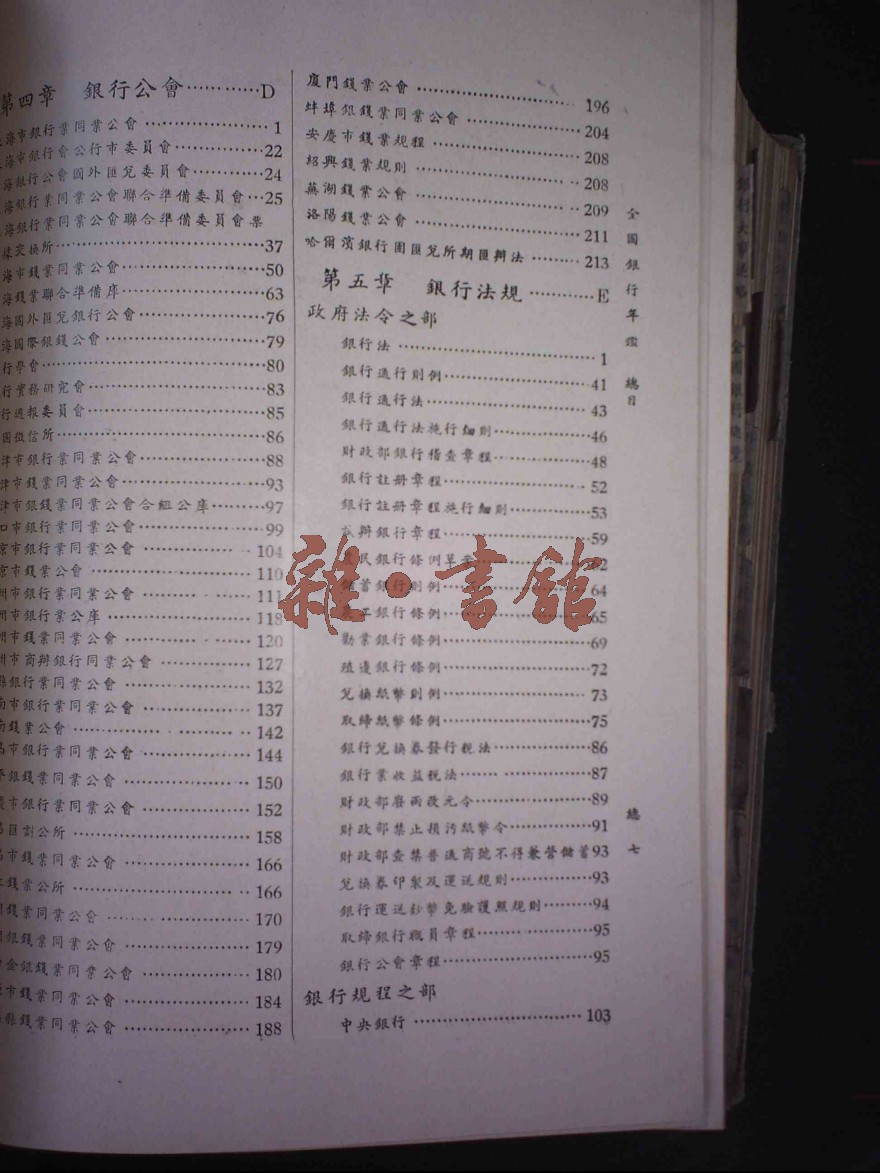 第四章　銀行公會…………D
海市銀行業同業公會…………1
海市銀行會公行市委員會…………22
海銀行公會國外匯兌委員會…………24
海銀行業同業公會聯合準備委員會…25
海銀行業同業公會聯合準備委員會票
據交換所…………37
海市錢業同業公會…………50
海錢業聯合準備庫…………63
海國外匯兌銀行公會…………76
海國際銀錢公會…………79
行學會…………80
行實務研究會…………83
行週報委員會…………85
國徵信所…………86
津市銀行業同業公會…………88
津市錢業同業公會…………93
津市銀錢業同業公會合組公庫…………97
口市銀行業同業公會…………99
京市銀行業同業公會…………104
京市錢業公會…………110
州市銀行業同業公會…………111
州市銀行業公庫…………118
州市錢業同業公會…………120
州市商辦銀行同業公會…………127
縣銀行業同業公會…………132
南市銀行業同業公會…………137
南錢業公會…………142
昌市銀行業同業公會…………144
銀錢業同業公會…………150
市銀行業同業公會…………152
匯劃公所…………158
市錢業同業公會…………166
錢業公所…………166
錢業同業公會…………170
銀錢業同業公會…………179
金銀錢業同業公會…………180
市錢業同業公會…………184
縣錢業同業公會…………188
廈門錢業公會…………196
蚌埠銀錢業同業公會…………204
安慶市錢業規程…………208
紹興錢業規則…………208
蕪湖錢業公會…………209
洛陽錢業公會…………211
哈爾濱銀行團匯兌所期匯辦法…………213
第五章　銀行法規…………E
政府法令之部
銀行法…………1
銀行通行則例…………41
銀行通行法…………43
銀行通行法施行細則…………46
財政部銀行稽查章程…………48
銀行註册章程…………52
銀行註册章程施行細則…………53
辦銀行章程…………59
民銀行條例草案…………62
儲蓄銀行則例…………64
農工銀行條例…………65
勸業銀行條例…………69
殖邊銀行條例…………72
兌換紙幣則例…………73
取締紙幣條例…………75
銀行兌換券發行稅法…………86
銀行業收益稅法…………87
財政部廢兩改元令…………89
財政部禁止損污紙幣令…………91
財政部查禁普通商號不得兼營儲蓄93
兌換券印製及運送規則…………93
銀行運送鈔幣免驗護照規則…………94
取締銀行職員章程…………95
銀行公會章程…………95
銀行規程之部
中央銀行…………103
全國銀行年鑑　總目
總七
雜·書館